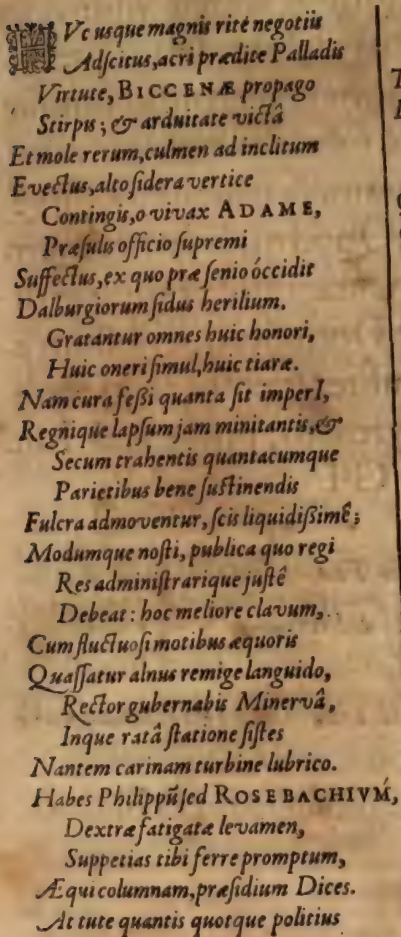 HVc usque magnis rité negotiis
Adſcitus, acri prædite Palladis
Virtute, BICCENÆ propago
Stirpis; & arduitate victâ
Et mole rerum, culmen ad inclitum
Evectus, alto ſidera vertice
Contingis, o vivax ADAME,
Præſulis officio ſupremi
Suffectus, ex quo præ ſenio óccidit
Dalburgiorum ſidus herilium.
Gratantur omnes huic honori,
Huic oneri ſimul, huic tiaræ.
Nam cura feßi quanta ſit imperI,
Regnique lapſum jam minitantis, &
Secum trahentis quantacumque
Parietibus bene ſuſtinendis
Fulcra admoventur, ſcis liquidißimê;
Modumque noſti, publica quo regi
Res adminiſtrarique juſtê
Debeat: hoc meliore clavum,
Cum fluctuoſi motibus æquoris
Quaſſatur alnus remige languido,
Rector gubernabis Minervâ,
Inque ratâ ſtatione ſiſtes
Nantem carinam turbine lubrico.
Habes Philippũ ſed ROSEBACHIVM,
Dextræ fatigatæ levamen,
Suppetias tibi ferre promptum,
Æqui columnam, præſidium Dices.
At tute quantis quotque politius